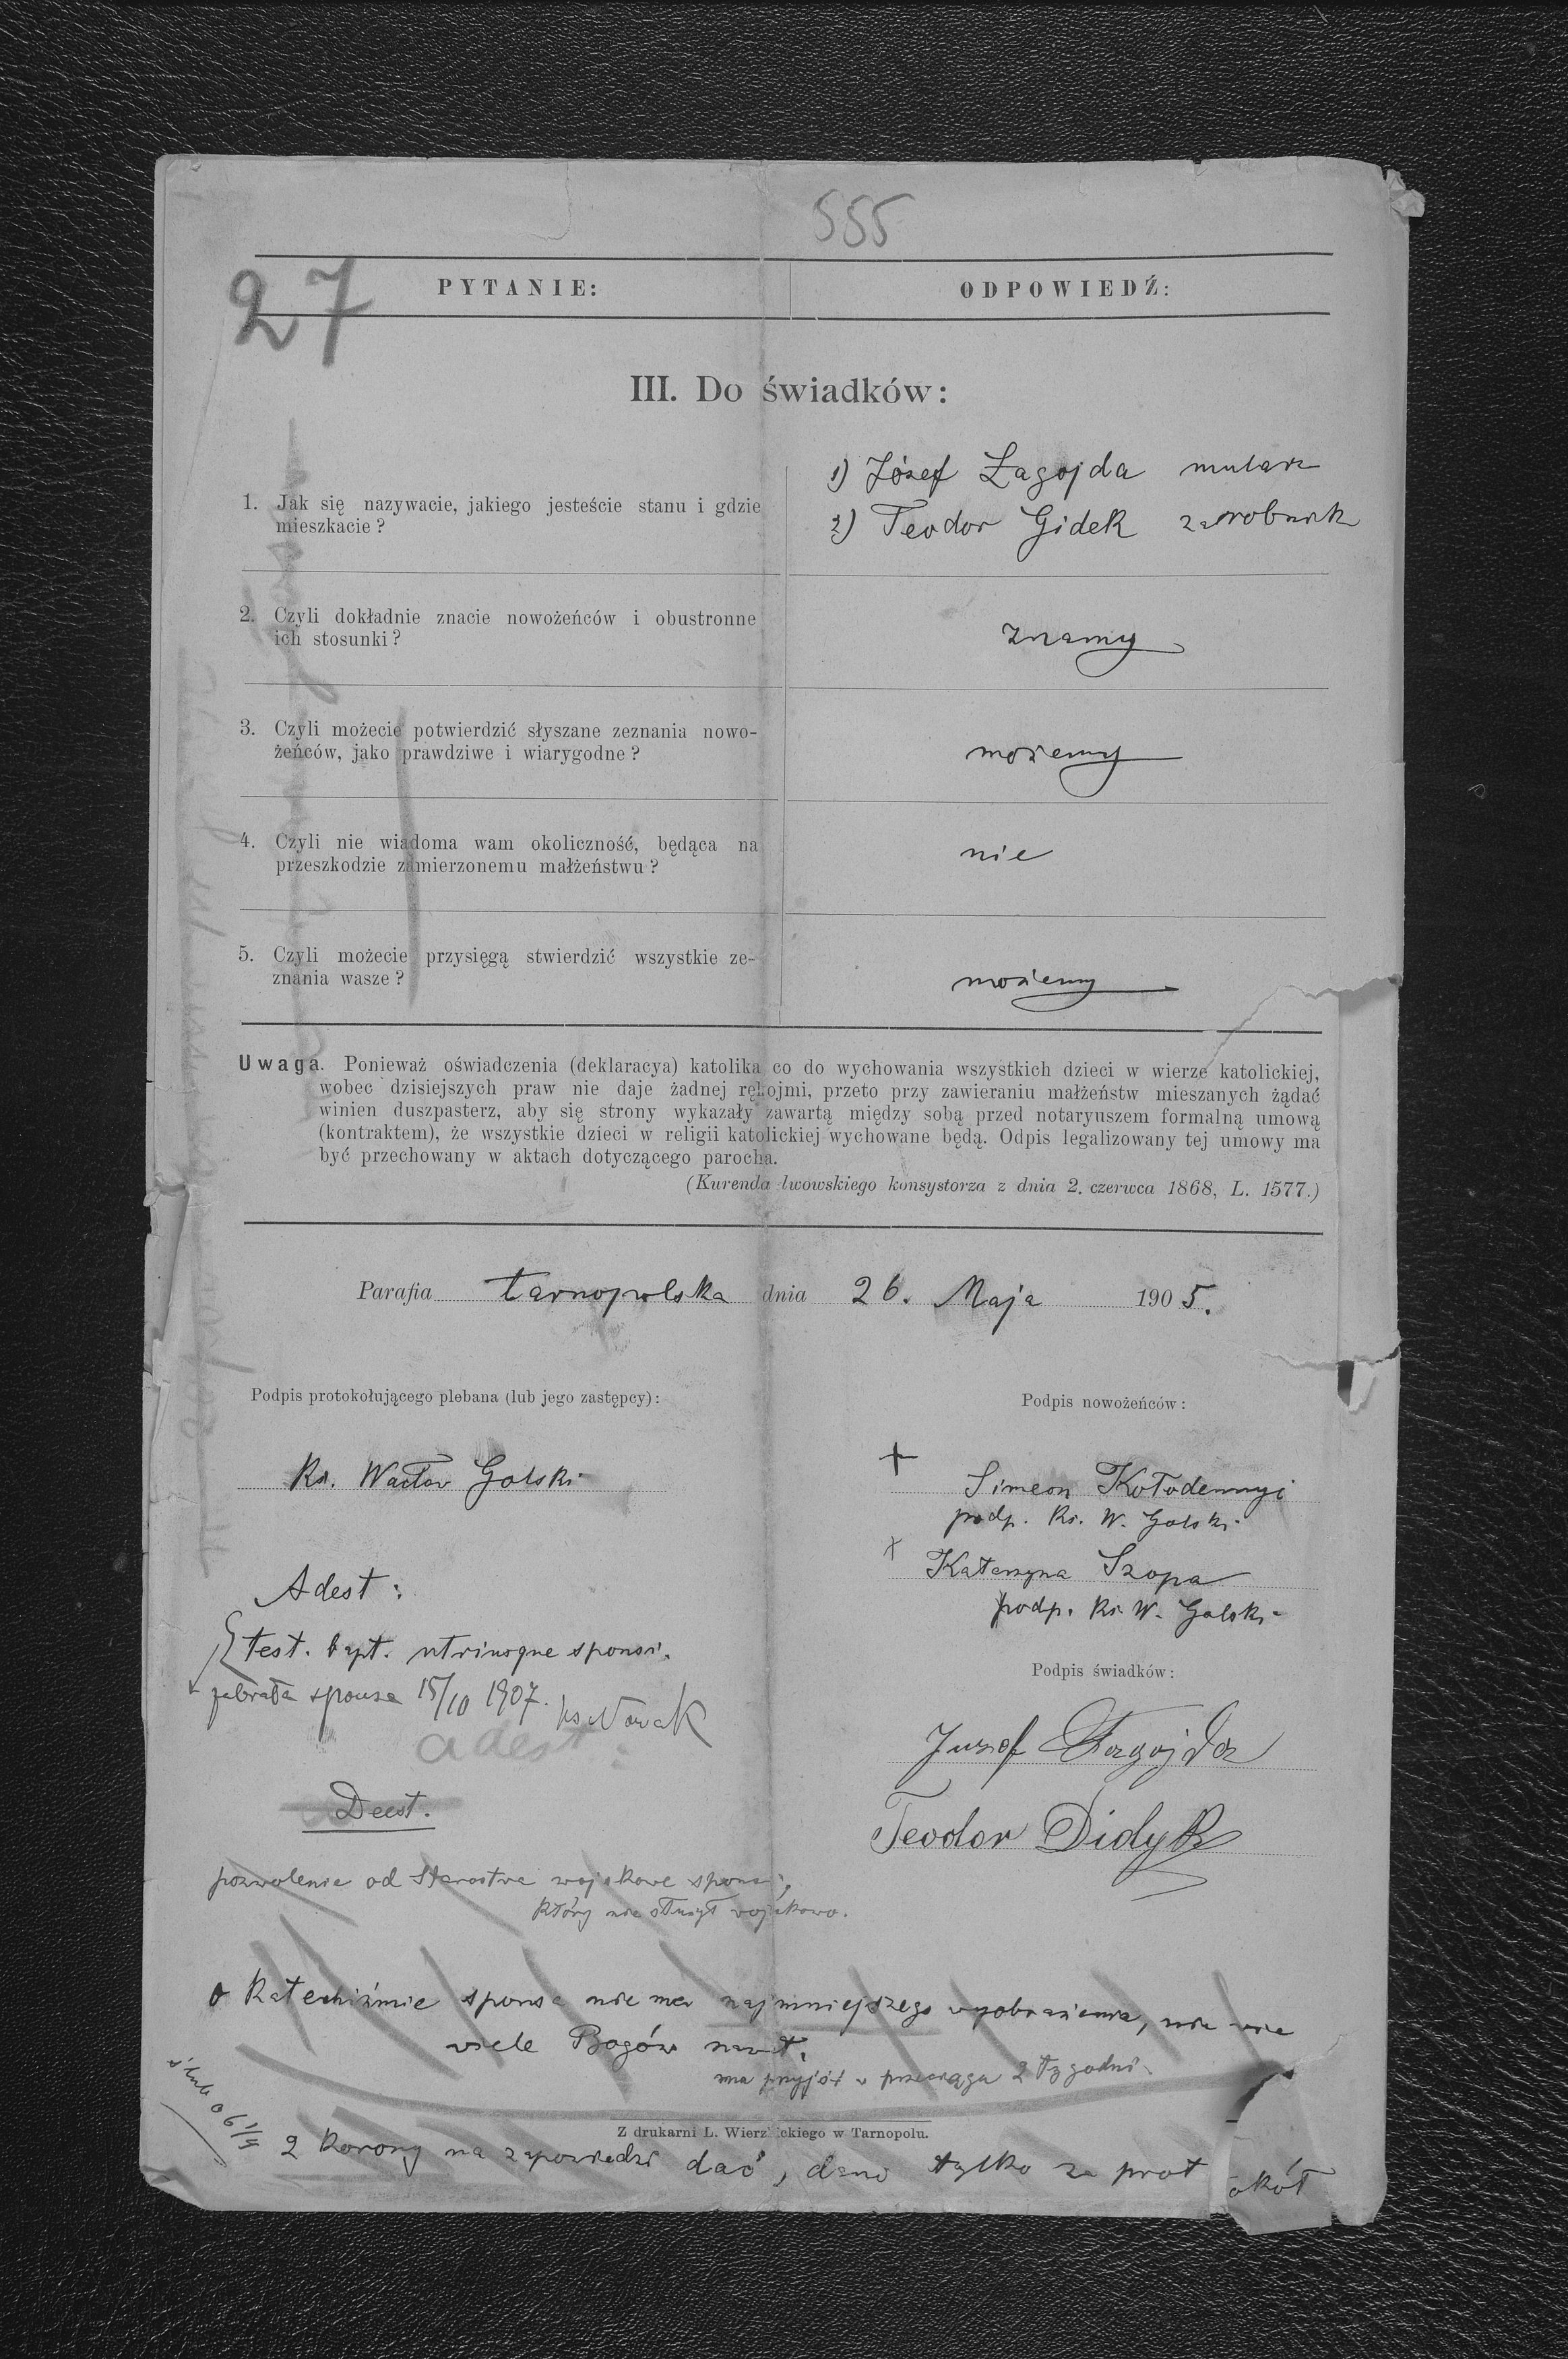 555
27
PYTANIE:
ODPOWIEDŹ:
III. Do świadków:
1. Jak się nazywacie, jakiego jesteście stanu i gdzie
mieszkacie?
1) Józef Łagojda mularz
2) Teodor Gidek zarobnik
2. Czyli dokładnie znacie nowożeńców i obustronne
ich stosunki?
znamy
3. Czyli możecie potwierdzić słyszane zeznania nowo-
żeńców, jako prawdziwe i wiarygodne?
możemy
4. Czyli nie wiadoma wam okoliczność, będąca na
przeszkodzie zamierzonemu małżeństwu?
nie
5. Czyli możecie przysięgą stwierdzić wszystkie ze-
znania wasze?
możemy
Uwaga. Ponieważ oświadczenia (deklaracya) katolika co do wychowania wszystkich dzieci w wierze katolickiej,
wobec dzisiejszych praw nie daje żadnej rękojmi, przeto przy zawieraniu małżeństw mieszanych żądać
winien duszpasterz, aby się strony wykazały zawartą między sobą przed notaryuszem formalną umową
(kontraktem), że wszystkie dzieci w religii katolickiej wychowane będą. Odpis legalizowany tej umowy ma
być przechowany w aktach dotyczącego parocha.
(Kurenda lwowskiego konsystorza z dnia 2. czerwca 1868, L. 1577.)
Parafia tarnopolska dnia 26. Maja 1905.
Podpis protokołującego plebana (lub jego zastępcy):
Ks. Wacław Golski
Podpis nowożeńców:
+
Simeon Kołodennyi
podp. Ks. W. Golski
+
Katarzyna Szopa
podp. Ks. W. Golski
Adest:
test. bapt. utriusque sponsi.
zabrała sponsa 15/10 1907. ks Nowak
adest:
Deest.
Podpis świadków:
Juzef Łagojda
Teodor Didyk
pozwolenie od Starostwa wojskowe sponsi,
który nie służył wojskowo.
o Katechiźmie sponsa nie ma najmniejszego wyobrażenia, nie wie
wiele Bogów nawet.
ma przyjść w przeciągu 2 tygodni.
ślub 06
Z drukarni L. Wierzbickiego w Tarnopolu.
2 korony na zapowiedzi dać, dano tylko za protokół